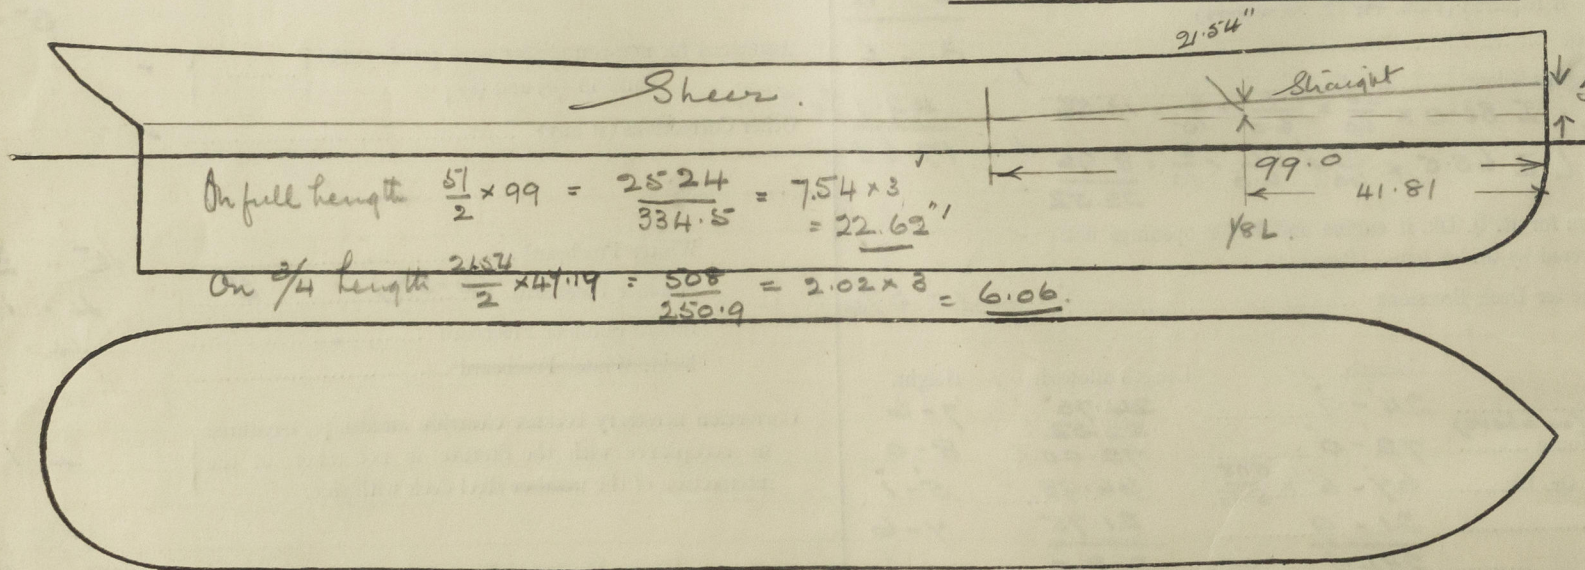 21.54"
Sheer.
Straight
99.0
41.81
1/8 L.
On full length 51/2 × 99 = 2524/334.5 = 7.54 × 3
= 22.62"
On 3/4 length 2154/2 × 47.19 = 508/250.9 = 2.02 × 3 = 6.06.